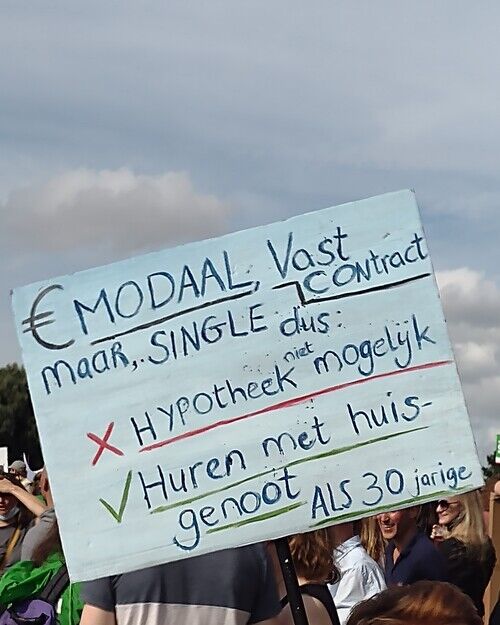 € MODAAL, Vast
contract
maar, SINGLE dus:
niet
X HYPotheek mogelijk
✓ Huren met huis-
genoot ALS 30 jarige